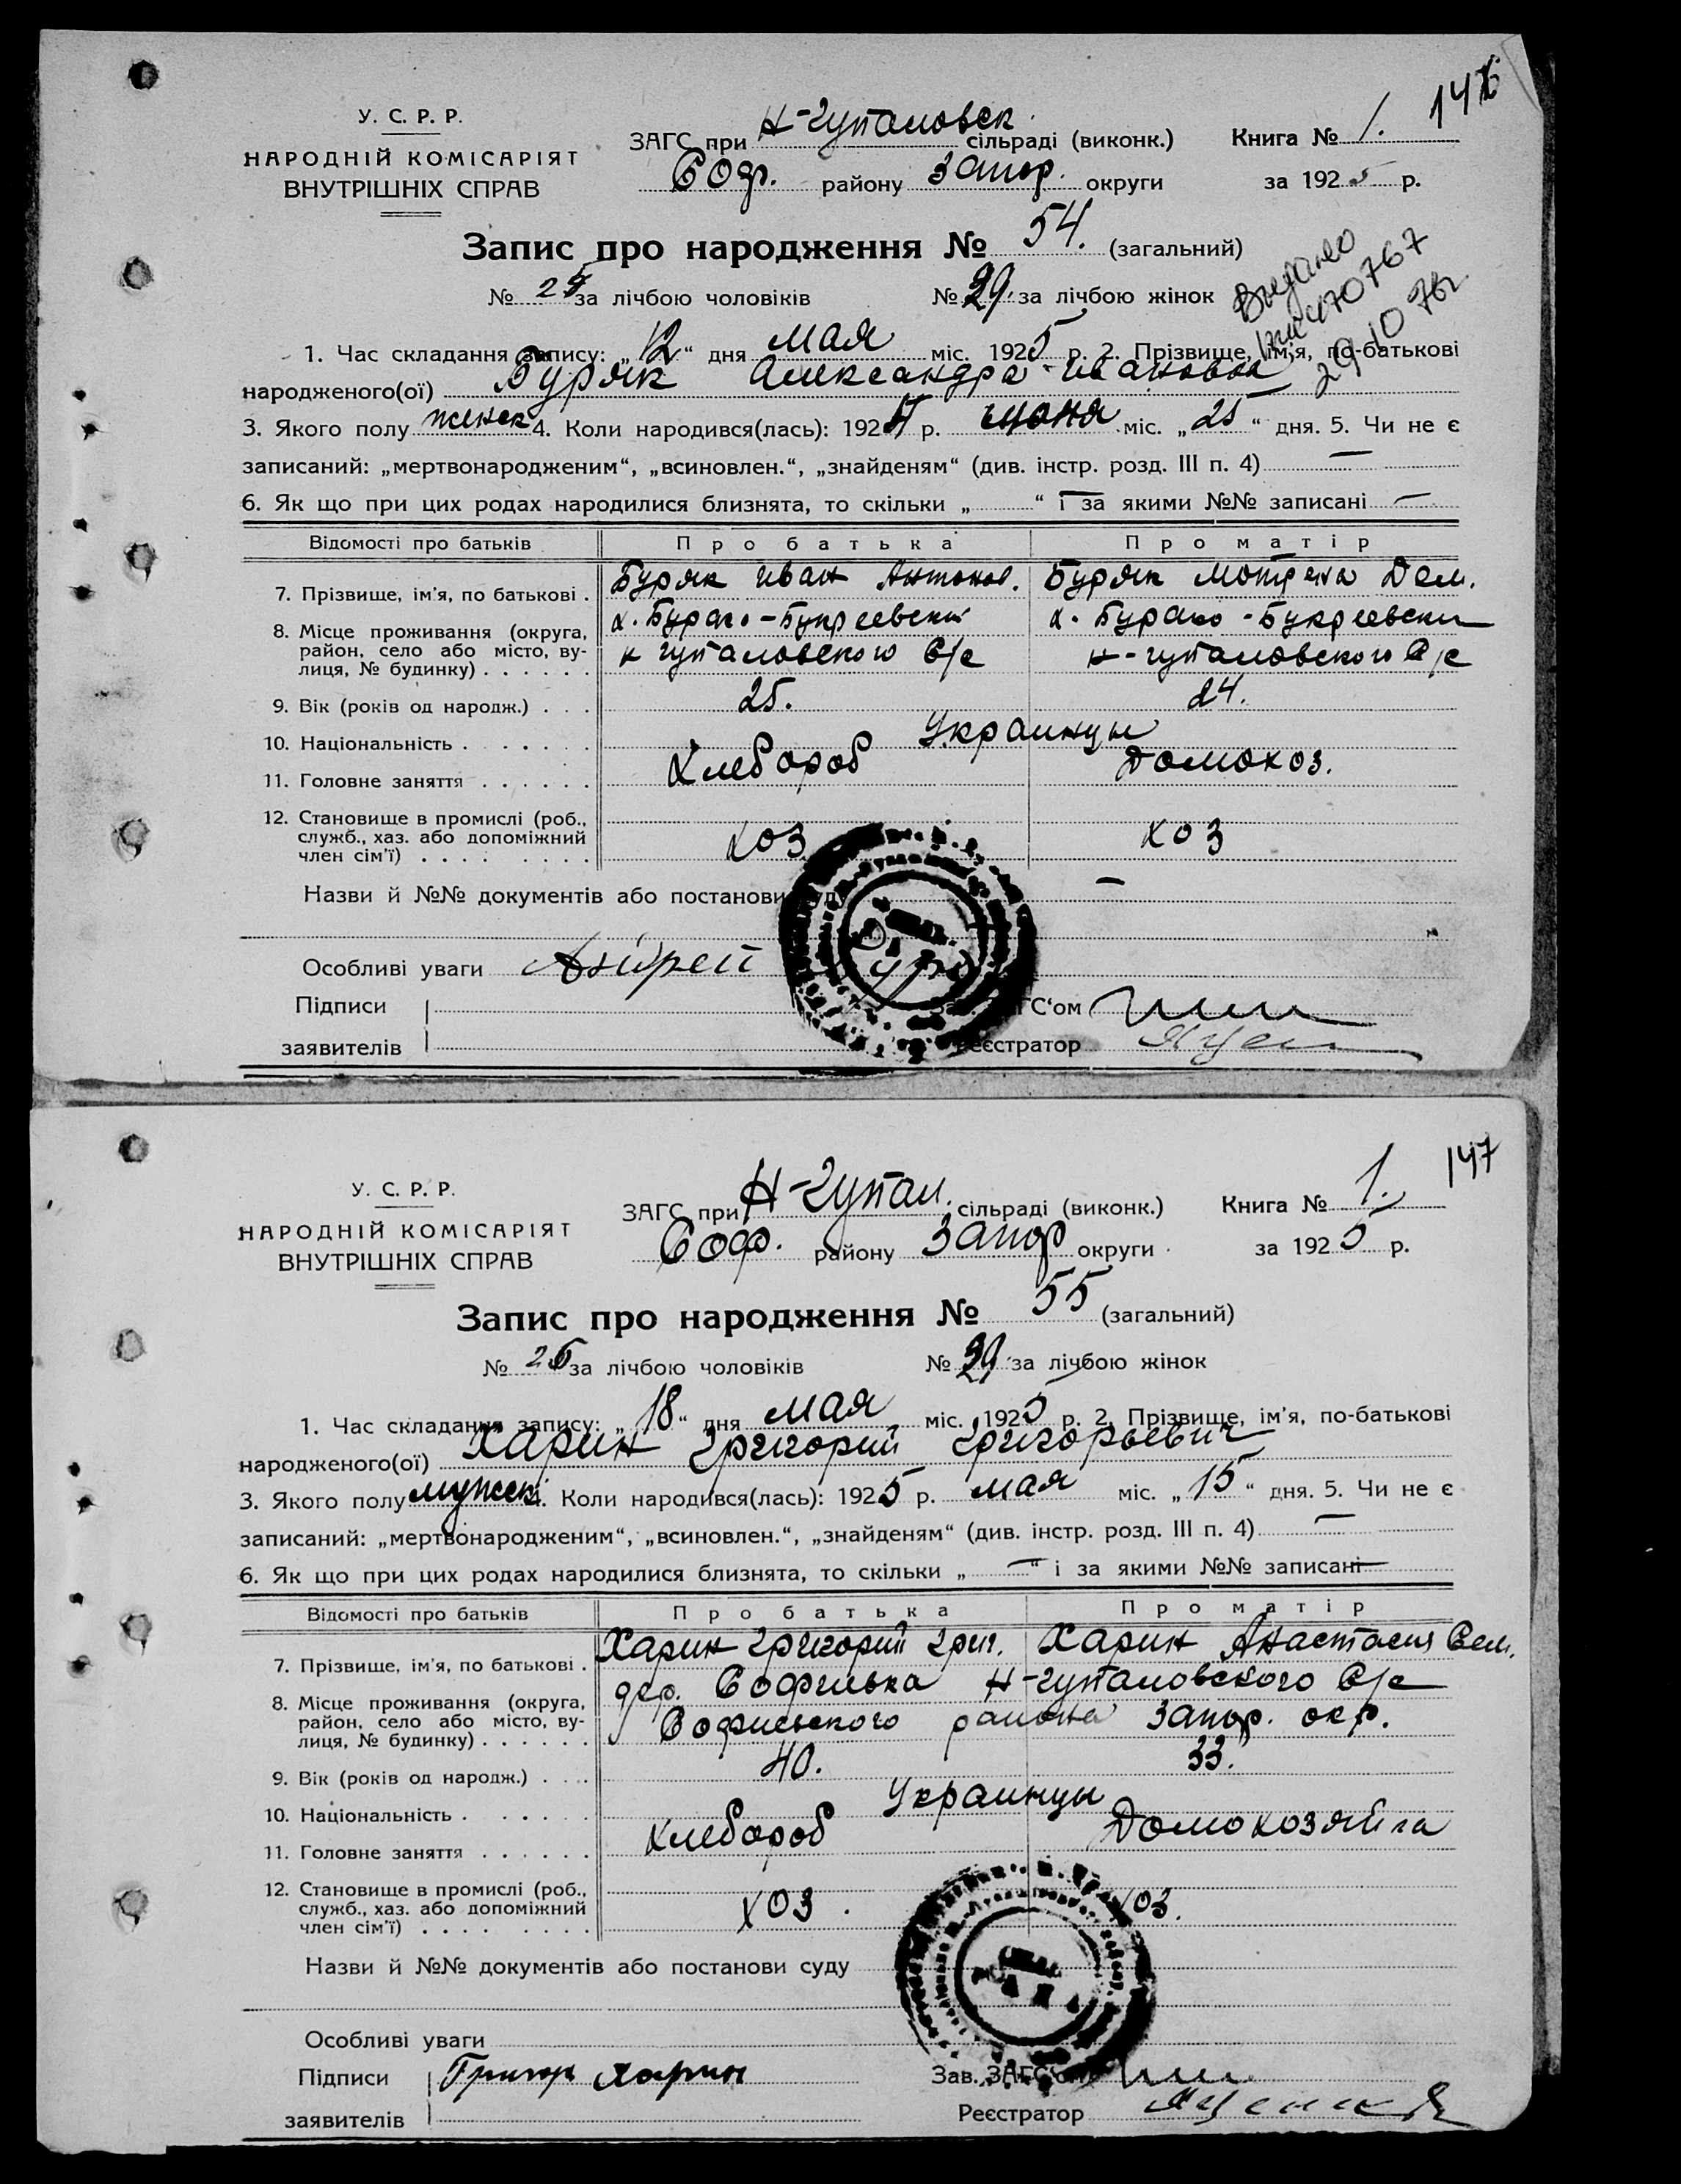 146
У. С. Р. Р.
НАРОДНІЙ КОМІСАРІЯТ
ВНУТРІШНІХ СПРАВ
ЗАГС при Н-Гупаловск. сільраді (виконк.)
Соф. району Запор. округи
Книга № 1.
за 1925 р.
Запис про народження № 54. (загальний)
№ 25 за лічбою чоловіків № 29. за лічбою жінок
Выдано
470767
29 10 76г.
1. Час складання запису: „12“ дня мая міс. 1925 р. 2. Прізвище, ім'я, по-батькові
народженого(ої) Буряк Александра Ивановна
3. Якого полу женск 4. Коли народився(лась): 1924 р. июня міс. „25“ дня. 5. Чи не є
записаний: „мертвонародженим“, „всиновлен.“, „знайденям“ (див. інстр. розд. III п. 4) —
6. Як що при цих родах народилися близнята, то скільки „ — “ і за якими №№ записані —
Відомості про батьків Про батька Про матір
7. Прізвище, ім'я, по батькові . Буряк Иван Антонов. Буряк Мотрена Дем.
8. Місце проживання (округа, район, село або місто, вулиця, № будинку) х. Бураго-Букреевский х. Бураго-Букреевски
Н Гупаловского С/с Н-Гупаловского С/с
9. Вік (років од народж.) 25. 24.
10. Національність Украинцы
11. Головне заняття Хлебороб Домохоз.
12. Становище в промислі (роб., служб., хаз. або допоміжний член сім'ї) хоз хоз
Назви й №№ документів або постанови суду —
Особливі уваги Андрей
Підписи ЗАГС'ом
заявителів Реєстратор Яцен
147
У. С. Р. Р.
НАРОДНІЙ КОМІСАРІЯТ
ВНУТРІШНІХ СПРАВ
ЗАГС при Н-Гупал. сільраді (виконк.)
Соф. району Запор округи
Книга № 1.
за 1925 р.
Запис про народження № 55 (загальний)
№ 26 за лічбою чоловіків № 29 за лічбою жінок
1. Час складання запису: „18“ дня мая міс. 1925 р. 2. Прізвище, ім'я, по-батькові
народженого(ої) Харин Григорий Григорьевич
3. Якого полу мужск. 4. Коли народився(лась): 1925 р. мая міс. „15“ дня. 5. Чи не є
записаний: „мертвонародженим“, „всиновлен.“, „знайденям“ (див. інстр. розд. III п. 4) —
6. Як що при цих родах народилися близнята, то скільки „ — “ і за якими №№ записані —
Відомості про батьків Про батька Про матір
7. Прізвище, ім'я, по батькові . Харин Григорий Григ. Харин Анастасия Сем.
8. Місце проживання (округа, район, село або місто, вулиця, № будинку) дер. Софиевка Н-Гупаловского С/с
Софиевского района Запор. окр.
9. Вік (років од народж.) 40. 33.
10. Національність Украинцы
11. Головне заняття Хлебороб Домохозяйка
12. Становище в промислі (роб., служб., хаз. або допоміжний член сім'ї) хоз. хоз.
Назви й №№ документів або постанови суду
Особливі уваги
Підписи Григор Харин Зав. ЗАГС'ом
заявителів Реєстратор Яценко